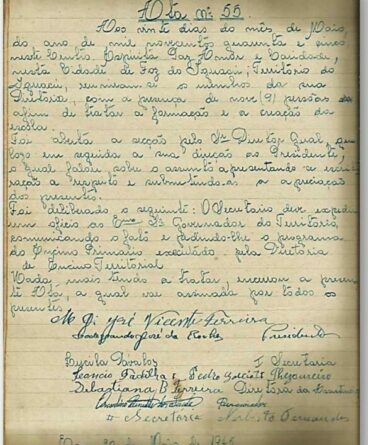 Ata nº 55
Aos vinte dias do mês de Maio,
do ano de mil novecentos quarenta e cinco
neste Centro Espirita Paz Amor e Caridade,
nesta Cidade de Foz do Iguaçú; Territorio do
Iguaçú, reuniram-se os membros da sua
Diretoria, com a presença de nove (9) pessoas
afim de tratar a formação e a criação da
escola.
Foi aberta a secção pelo Snr Diretor Geral, que
em seguida a sua direção ao Presidente,
o qual falou sobre o assunto apresentando
a respeito e submetendo a apreciação
dos presentes.
Foi deliberado o seguinte: O Secretario deve expedir
um oficio ao Exmo Sr Governador do Territorio,
comunicando o fato e pedindo-lhe o programa
do Ensino Primario executado pela Diretoria
de Ensino Territorial
Nada mais tendo a tratar, encerrou a presen
te Ata, a qual vae assinada por todos os
presentes
José Vicente Ferreira
José da Rocha Presidente
Secretaria
Padilha Pedro Thezoureiro
Sebastiana B Ferreira Diretoria da
Secretaria Norberto Fernandes
Maio